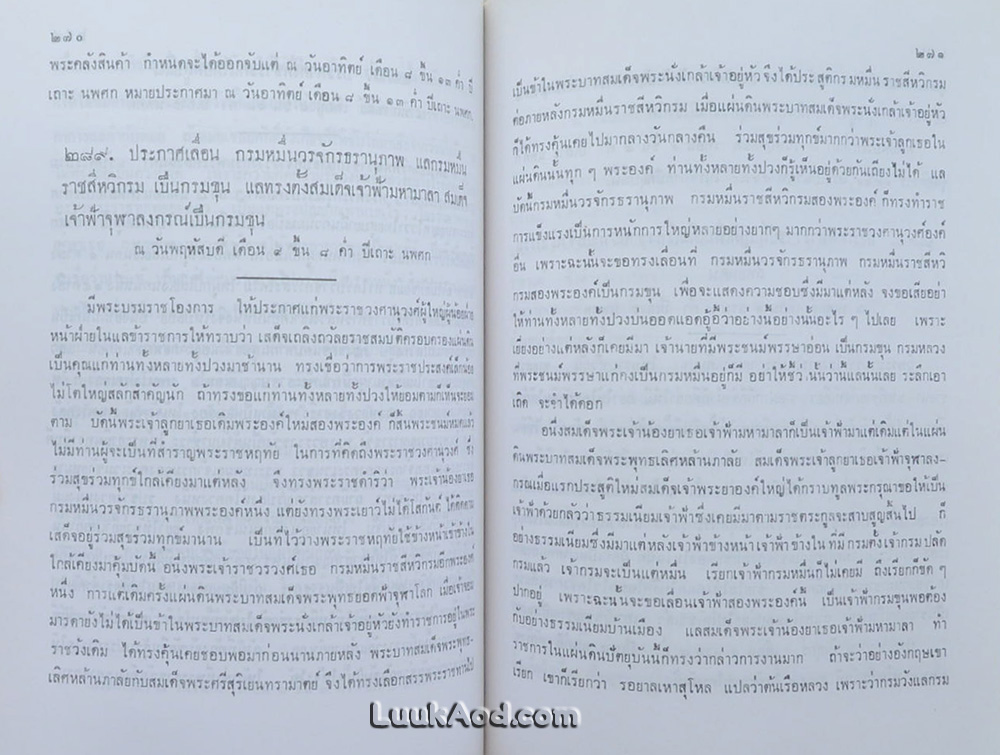 ๒๗๐
พระคลังสินค้า กำหนดจะได้ออกจับแต่ ณ วันอาทิตย์ เดือน ๘ ขึ้น ๑๓ ค่ำ ปี
เถาะ นพศก หมายประกาศมา ณ วันอาทิตย์ เดือน ๘ ขึ้น ๑๓ ค่ำ ปีเถาะ นพศก
๒๘๙. ประกาศเลื่อน กรมหมื่นวรจักรธรานุภาพ แลกรมหมื่น
ราชสีหวิกรม เป็นกรมขุน แลทรงตั้งสมเด็จเจ้าฟ้ามหามาลา สมเด็จ
เจ้าฟ้าจุฬาลงกรณ์เป็นกรมขุน
ณ วันพฤหัสบดี เดือน ๙ ขึ้น ๘ ค่ำ ปีเถาะ นพศก
มีพระบรมราชโองการ ให้ประกาศแก่พระราชวงศานุวงศ์ผู้ใหญ่ผู้น้อยฝ่าย
หน้าฝ่ายในแลข้าราชการให้ทราบว่า เสด็จเถลิงถวัลยราชสมบัติครอบครองแผ่นดิน
เป็นคุณแก่ท่านทั้งหลายทั้งปวงมาช้านาน ทรงเชื่อว่าการพระราชประสงค์เล็กน้อย
ไม่โตใหญ่สลักสำคัญนัก ถ้าทรงขอแก่ท่านทั้งหลายทั้งปวงให้ยอมตามก็เห็นจะยอม
ตาม บัดนี้พระเจ้าลูกยาเธอเดิมพระองค์ใหม่สองพระองค์ ก็สิ้นพระชนม์หมดแล้ว
ไม่มีท่านผู้จะเป็นที่สำราญพระราชหฤทัย ในการที่คิดถึงพระราชวงศานุวงศ์ ซึ่ง
ร่วมสุขร่วมทุกข์ใกล้เคียงมาแต่หลัง จึงทรงพระราชดำริว่า พระเจ้าน้องยาเธอ
กรมหมื่นวรจักรธรานุภาพพระองค์หนึ่ง แต่ยังทรงพระเยาว์ไม่ได้โสกันต์ ได้ติดตาม
เสด็จอยู่ร่วมสุขร่วมทุกข์มานาน เป็นที่ไว้วางพระราชหฤทัยใช้ข้างหน้าเข้าข้างใน
ใกล้เคียงมาคุ้มบัดนี้ อนึ่งพระเจ้าราชวรวงศ์เธอ กรมหมื่นราชสีหวิกรมอีกพระองค์
หนึ่ง การแต่เดิมครั้งแผ่นดินพระบาทสมเด็จพระพุทธยอดฟ้าจุฬาโลก เมื่อเจ้าจอม
มารดายังไม่ได้เป็นข้าในพระบาทสมเด็จพระนั่งเกล้าเจ้าอยู่หัวยังทำราชการอยู่ในพระ
ราชวังเดิม ได้ทรงคุ้นเคยชอบพอมาก่อนนานภายหลัง พระบาทสมเด็จพระพุทธ-
เลิศหล้านภาลัยกับสมเด็จพระศรีสุริเยนทรามาตย์ จึงได้ทรงเลือกสรรพระราชทานไป
๒๗๑
เป็นข้าในพระบาทสมเด็จพระนั่งเกล้าเจ้าอยู่หัว จึงได้ประสูติกรมหมื่นราชสีหวิกรม
ต่อภายหลังกรมหมื่นราชสีหวิกรม เมื่อแผ่นดินพระบาทสมเด็จพระนั่งเกล้าเจ้าอยู่หัว
ก็ได้ทรงคุ้นเคยไปมากลางวันกลางคืน ร่วมสุขร่วมทุกข์มากกว่าพระเจ้าลูกเธอใน
แผ่นดินนั้นทุก ๆ พระองค์ ท่านทั้งหลายทั้งปวงก็รู้เห็นอยู่ด้วยกันเถียงไม่ได้ แล
บัดนี้กรมหมื่นวรจักรธรานุภาพ กรมหมื่นราชสีหวิกรมสองพระองค์ ก็ทรงทำราช
การแข็งแรงเป็นการหนักการใหญ่หลายอย่างยากๆ มากกว่าพระราชวงศานุวงศ์องค์
อื่น เพราะฉะนั้นจะขอทรงเลื่อนที่ กรมหมื่นวรจักรธรานุภาพ กรมหมื่นราชสีหวิ
กรมสองพระองค์เป็นกรมขุน เพื่อจะแสดงความชอบซึ่งมีมาแต่หลัง จงขอเสียอย่า
ให้ท่านทั้งหลายทั้งปวงบ่นออดแอดอู้อี้ว่าอย่างนี้อย่างนั้นอะไร ๆ ไปเลย เพราะ
เยี่ยงอย่างแต่หลังก็เคยมีมา เจ้านายที่มีพระชนม์พรรษาอ่อน เป็นกรมขุน กรมหลวง
ที่พระชนม์พรรษาแก่คงเป็นกรมหมื่นอยู่ก็มี อย่าให้ซิ้ว่านั้นว่านี้แลนั้นเลย ระลึกเอา
เถิด จะจำได้ดอก
อนึ่งสมเด็จพระเจ้าน้องยาเธอเจ้าฟ้ามหามาลาก็เป็นเจ้าฟ้ามาแต่เดิมแต่ในแผ่น
ดินพระบาทสมเด็จพระพุทธเลิศหล้านภาลัย สมเด็จพระเจ้าลูกยาเธอเจ้าฟ้าจุฬาลง-
กรณ์เมื่อแรกประสูติใหม่สมเด็จเจ้าพระยาองค์ใหญ่ได้กราบทูลพระกรุณาขอให้เป็น
เจ้าฟ้าด้วยกลัวว่าธรรมเนียมเจ้าฟ้าซึ่งเคยมีมาตามราชตระกูลจะสาบสูญสิ้นไป ก็
อย่างธรรมเนียมซึ่งมีมาแต่หลังเจ้าฟ้าข้างหน้าเจ้าฟ้าข้างใน ที่มีกรมตั้งเจ้ากรมปลัด
กรมแล้ว เจ้ากรมจะเป็นแต่หมื่น เรียกเจ้าฟ้ากรมหมื่นก็ไม่เคยมี ถึงเรียกก็ขัด ๆ
ปากอยู่ เพราะฉะนั้นจะขอเลื่อนเจ้าฟ้าสองพระองค์นี้ เป็นเจ้าฟ้ากรมขุนพอต้อง
กับอย่างธรรมเนียมบ้านเมือง แลสมเด็จพระเจ้าน้องยาเธอเจ้าฟ้ามหามาลา ทำ
ราชการในแผ่นดินปัตยุบันนี้ก็ทรงว่ากล่าวการงานมาก ถ้าจะว่าอย่างอังกฤษเขา
เรียก เขาก็เรียกว่า รอยาลเหาสุโหล แปลว่าต้นเรือหลวง เพราะว่ากรมวังแลกรม
LuukAod.com